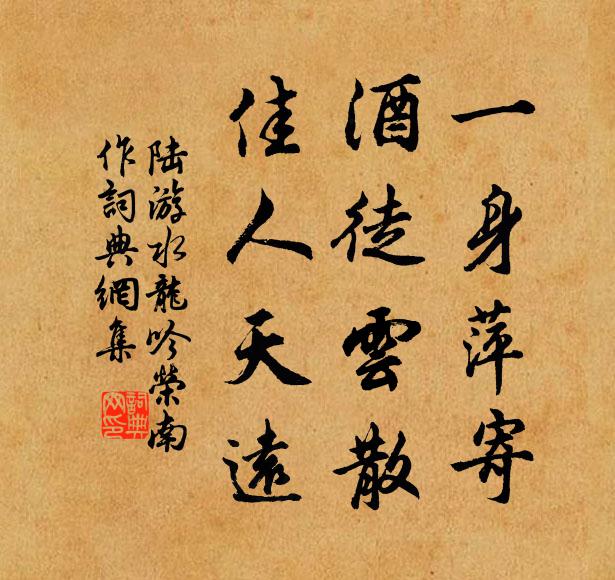 一身萍寄
酒徒雲散
佳人天遠
陆游水龍吟榮南
作詞典網集
詞典
网印